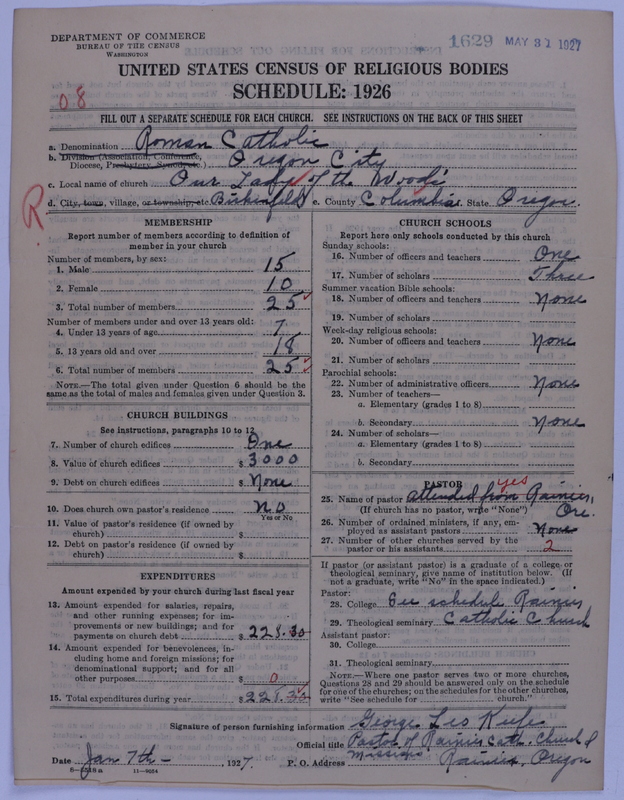 DEPARTMENT OF COMMERCE
BUREAU OF THE CENSUS
WASHINGTON
1629 MAY 31 1927
UNITED STATES CENSUS OF RELIGIOUS BODIES
SCHEDULE: 1926
08
FILL OUT A SEPARATE SCHEDULE FOR EACH CHURCH. SEE INSTRUCTIONS ON THE BACK OF THIS SHEET
a. Denomination Roman Catholic
b. Division (Association, Conference,
Diocese, Presbytery, Synod, etc.) Oregon City
c. Local name of church Our Lady of the Woods
d. City, town, village, or township, etc. Birkenfeld e. County Columbia State Oregon
R
MEMBERSHIP
Report number of members according to definition of
member in your church
Number of members, by sex:
1. Male 15
2. Female 10
3. Total number of members 25
Number of members under and over 13 years old:
4. Under 13 years of age 7
5. 13 years old and over 18
6. Total number of members 25
NOTE.—The total given under Question 6 should be the
same as the total of males and females given under Question 3.
CHURCH BUILDINGS
See instructions, paragraphs 10 to 12
7. Number of church edifices One
8. Value of church edifices $ 3000
9. Debt on church edifices $ None
10. Does church own pastor's residence No
Yes or No
11. Value of pastor's residence (if owned by
church) $
12. Debt on pastor's residence (if owned by
church) $
EXPENDITURES
Amount expended by your church during last fiscal year
13. Amount expended for salaries, repairs,
and other running expenses; for im-
provements or new buildings; and for
payments on church debt $ 228.30
14. Amount expended for benevolences, in-
cluding home and foreign missions; for
denominational support; and for all
other purposes $ 0
15. Total expenditures during year $
CHURCH SCHOOLS
Report here only schools conducted by this church
Sunday schools:
16. Number of officers and teachers One
17. Number of scholars Three
Summer vacation Bible schools:
18. Number of officers and teachers None
19. Number of scholars
Week-day religious schools:
20. Number of officers and teachers None
21. Number of scholars
Parochial schools:
22. Number of administrative officers None
23. Number of teachers—
a. Elementary (grades 1 to 8)
b. Secondary None
24. Number of scholars—
a. Elementary (grades 1 to 8)
b. Secondary
PASTOR yes
25. Name of pastor attended from Rainier,
(If church has no pastor, write "None") Ore.
26. Number of ordained ministers, if any, em-
ployed as assistant pastors None
27. Number of other churches served by the
pastor or his assistants 2
If pastor (or assistant pastor) is a graduate of a college or
theological seminary, give name of institution below. (If
not a graduate, write "No" in the space indicated.)
Pastor:
28. College See schedule Rainier
29. Theological seminary Catholic Church
Assistant pastor:
30. College
31. Theological seminary
NOTE.—Where one pastor serves two or more churches,
Questions 28 and 29 should be answered only on the schedule
for one of the churches; on the schedules for the other churches,
write "See schedule for church."
Signature of person furnishing information George
Official title Pastor of Rainier Cath. Church &
Missions
Date Jan 7th 1927. P. O. Address Rainier, Oregon